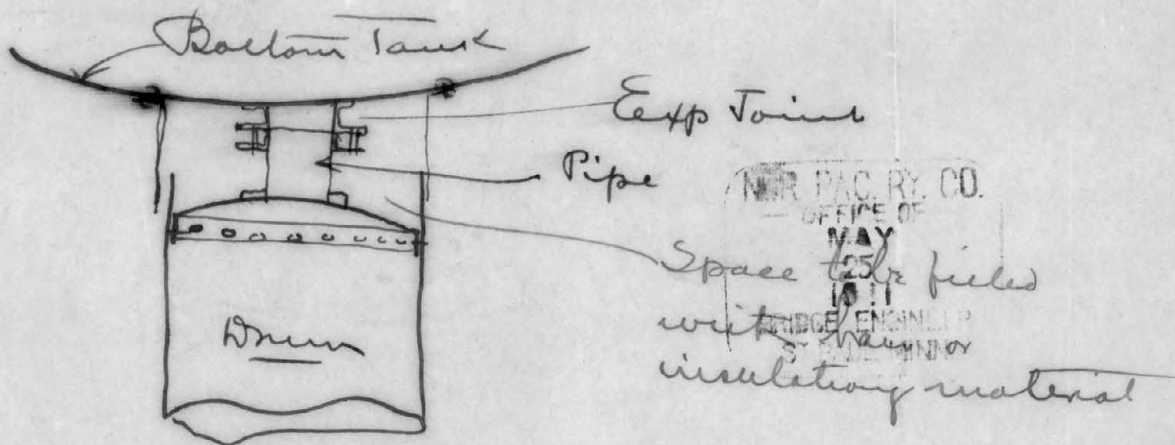 Bottom Tank
Exp Joint
Pipe
NOR. PAC. RY. CO.
OFFICE OF
MAY
25
1911
BRIDGE ENGINEER
ST PAUL MINN
Space to be filled
with or
insulating material
Drum